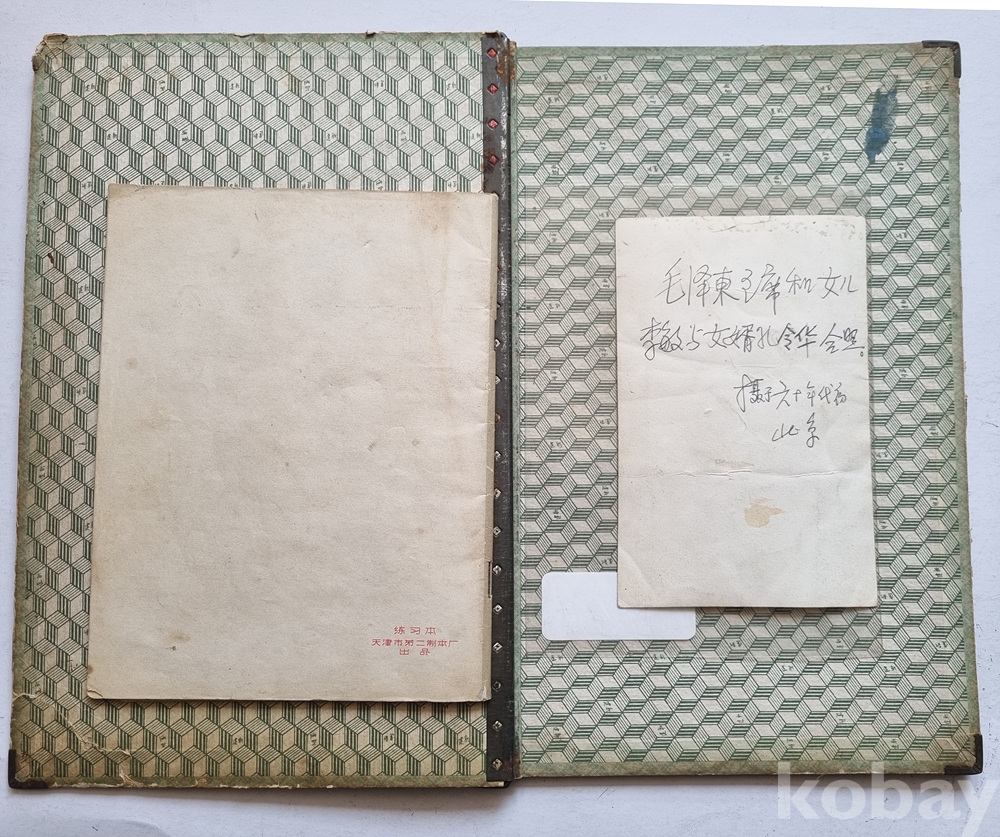 练习本
天津市第二制本厂
出品
毛泽東主席和女儿
李敏与女婿孔令华合照。
摄于六十年代初
北京
kobay